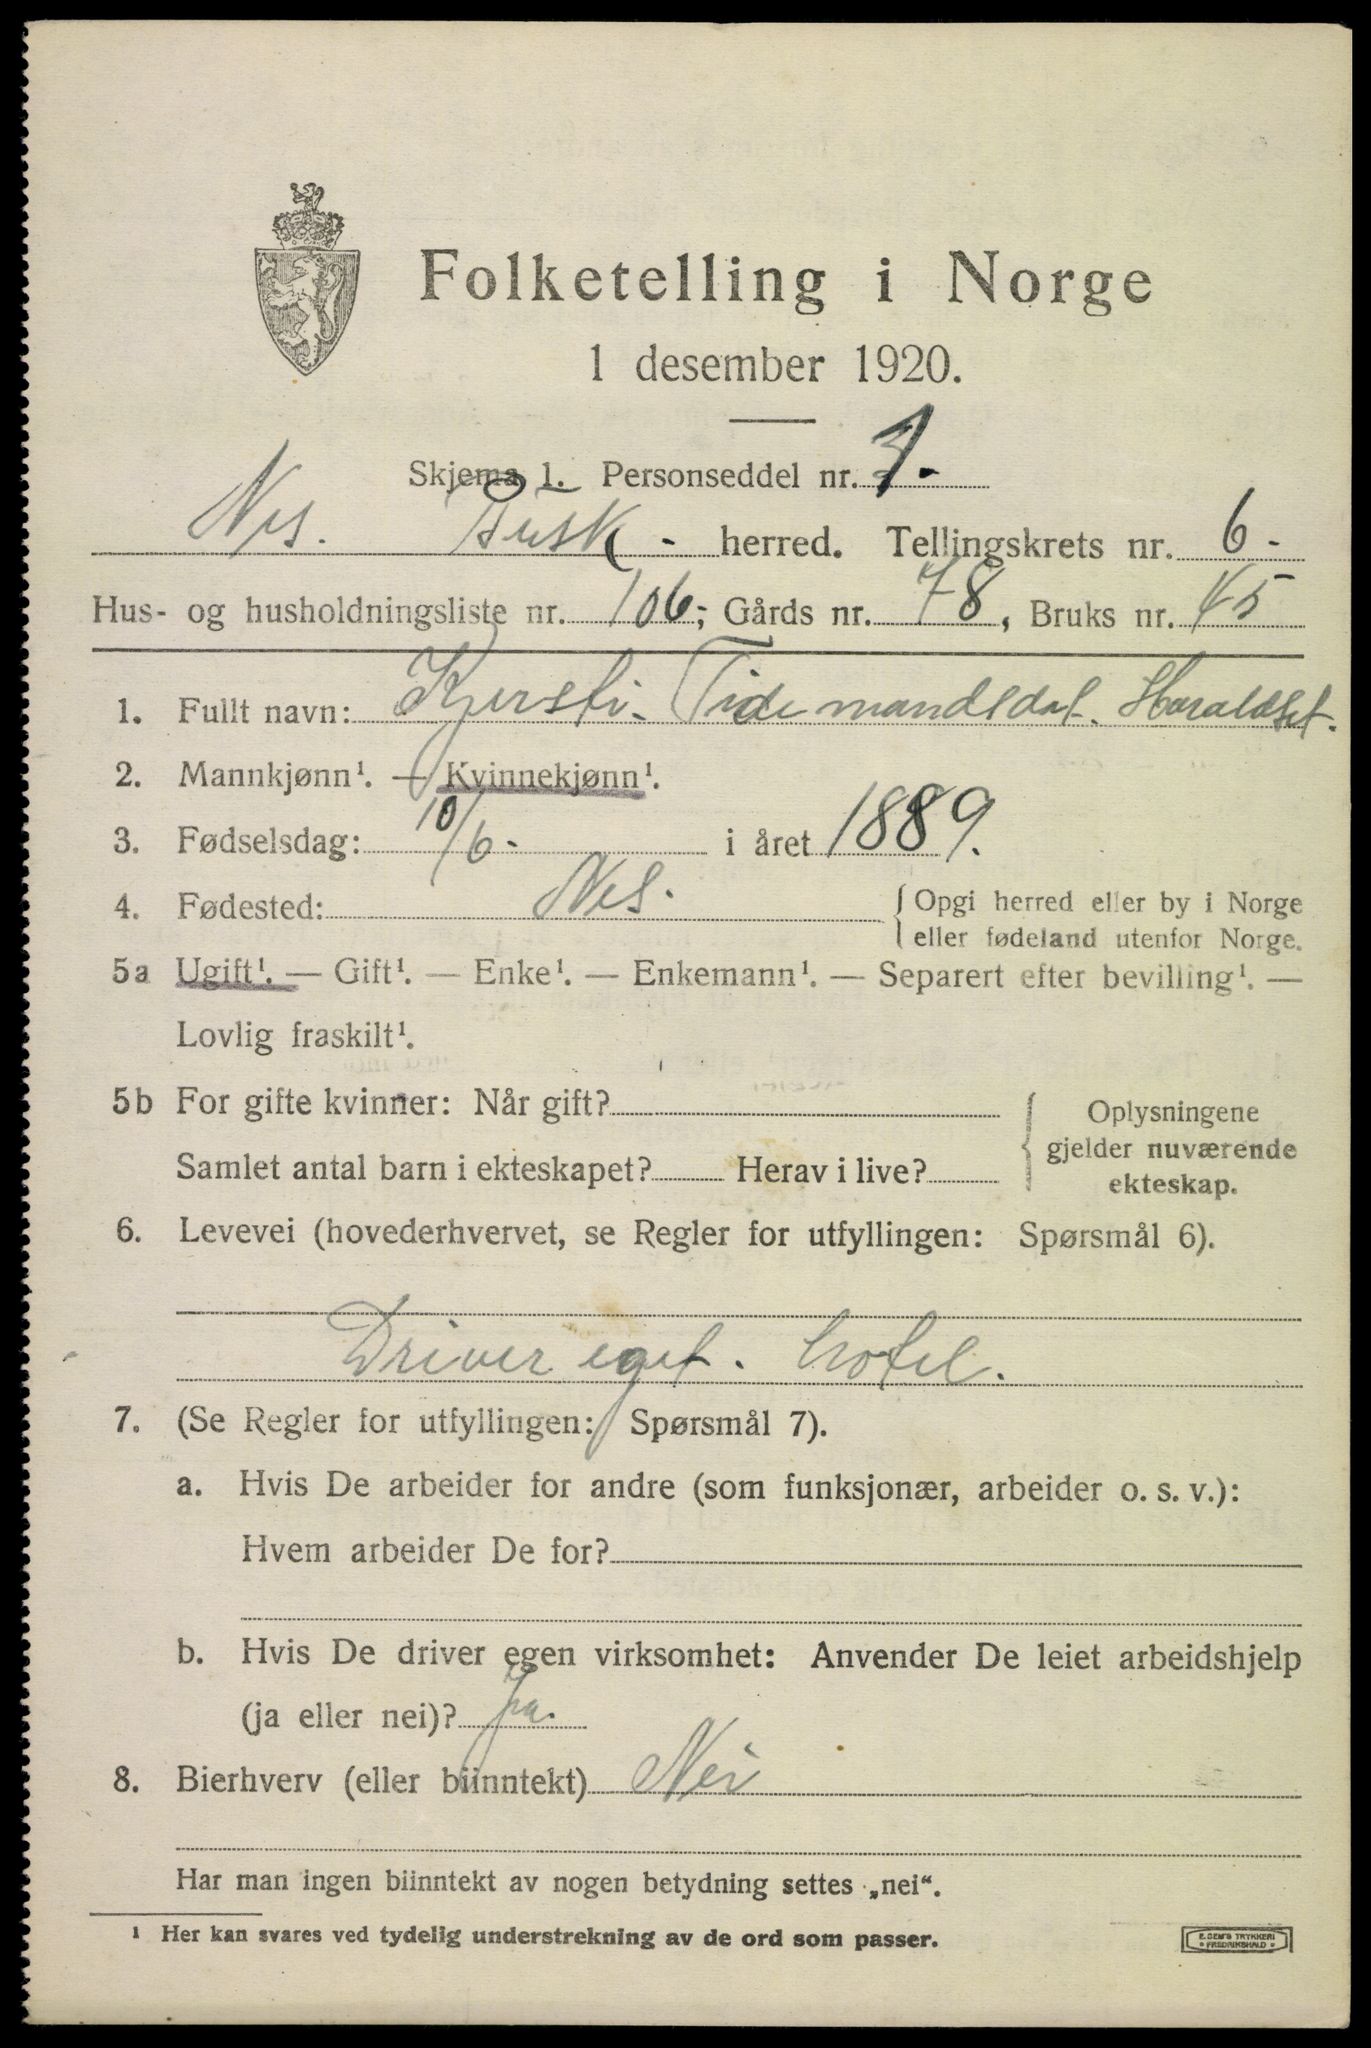 Folketelling i Norge
1 desember 1920.
Skjema 1. Personseddel nr. 1.
Nes. Busk - herred. Tellingskrets nr. 6-
Hus- og husholdningsliste nr. 106; Gårds nr. 78, Bruks nr. 45
1. Fullt navn: Kjersti Tidemandsdat. Haraldset.
2. Mannkjønn¹. — Kvinnekjønn¹.
3. Fødselsdag: 10/6- i året 1889.
4. Fødested: Nes. { Opgi herred eller by i Norge
eller fødeland utenfor Norge.
5a Ugift¹. — Gift¹. — Enke¹. — Enkemann¹. — Separert efter bevilling¹. —
Lovlig fraskilt¹.
5b For gifte kvinner: Når gift?
Samlet antal barn i ekteskapet? Herav i live?
{ Oplysningene
gjelder nuværende
ekteskap.
6. Levevei (hovederhvervet, se Regler for utfyllingen: Spørsmål 6).
Driver eget hotel.
7. (Se Regler for utfyllingen: Spørsmål 7).
a. Hvis De arbeider for andre (som funksjonær, arbeider o. s. v.):
Hvem arbeider De for?
b. Hvis De driver egen virksomhet: Anvender De leiet arbeidshjelp
(ja eller nei)? Ja.
8. Bierhverv (eller biinntekt) Nei
Har man ingen biinntekt av nogen betydning settes „nei“.
¹ Her kan svares ved tydelig understrekning av de ord som passer.
E. SEM'S TRYKKERI
FREDRIKSHALD